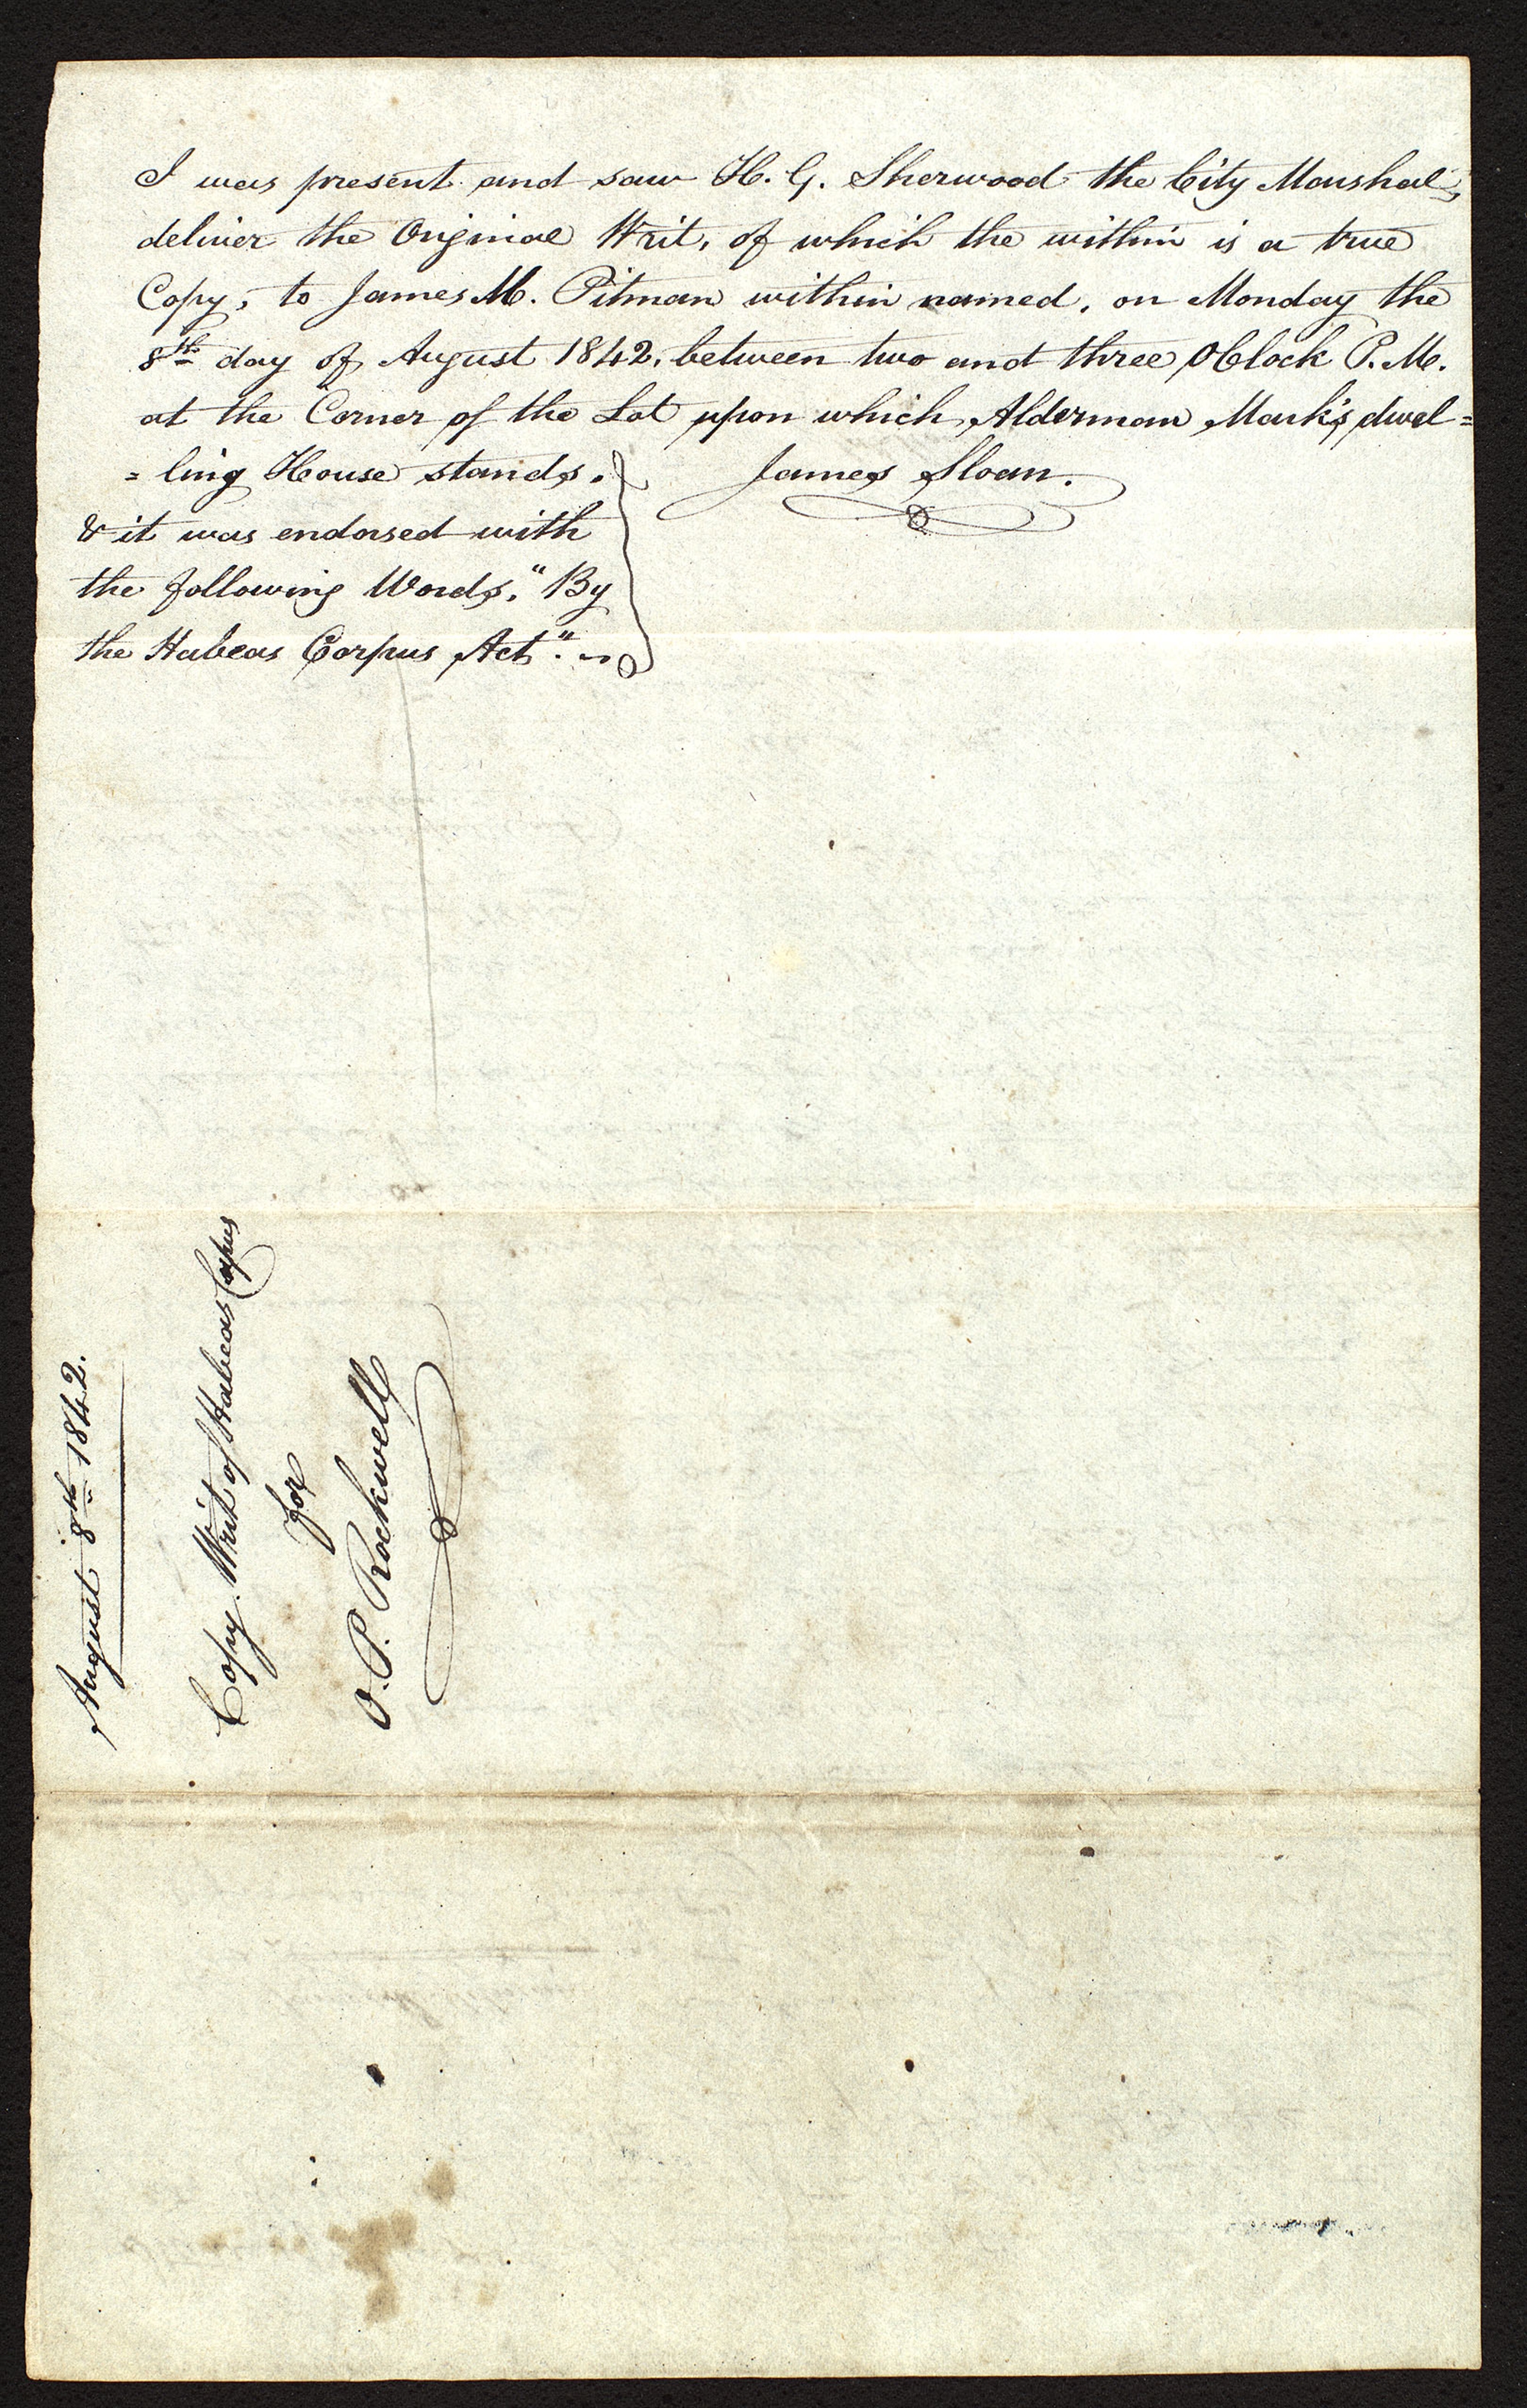 I was present and saw H. G. Sherwood the City Marshal,
deliver the Original Writ, of which the within is a true
Copy, to James M. Pitman within named, on Monday the
8th day of August 1842, between two and three OClock P. M.
at the Corner of the Lot upon which Alderman Mark's dwel=
=ling House stands. James Sloan.
& it was endorsed with
the following Words, "By
the Habeas Corpus Act".
August 8th 1842.
Copy. Writ of Habeas Corpus
for
O. P. Rockwell